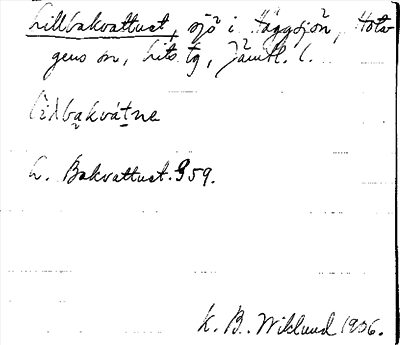 Lillbakvattnet, sjö i Häggsjön, Hotagens sn, Lits tg, Jämtl. l.
lìdba̱kvát̠ne
L. Bakvattnet. 959.
K. B. Wiklund 1906.